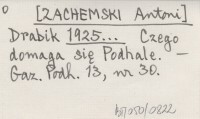 [ZACHEMSKI Antoni]
Drabik 1925... Czego
domaga się Podhale. —
Gaz. Podh. 13, nr 30.